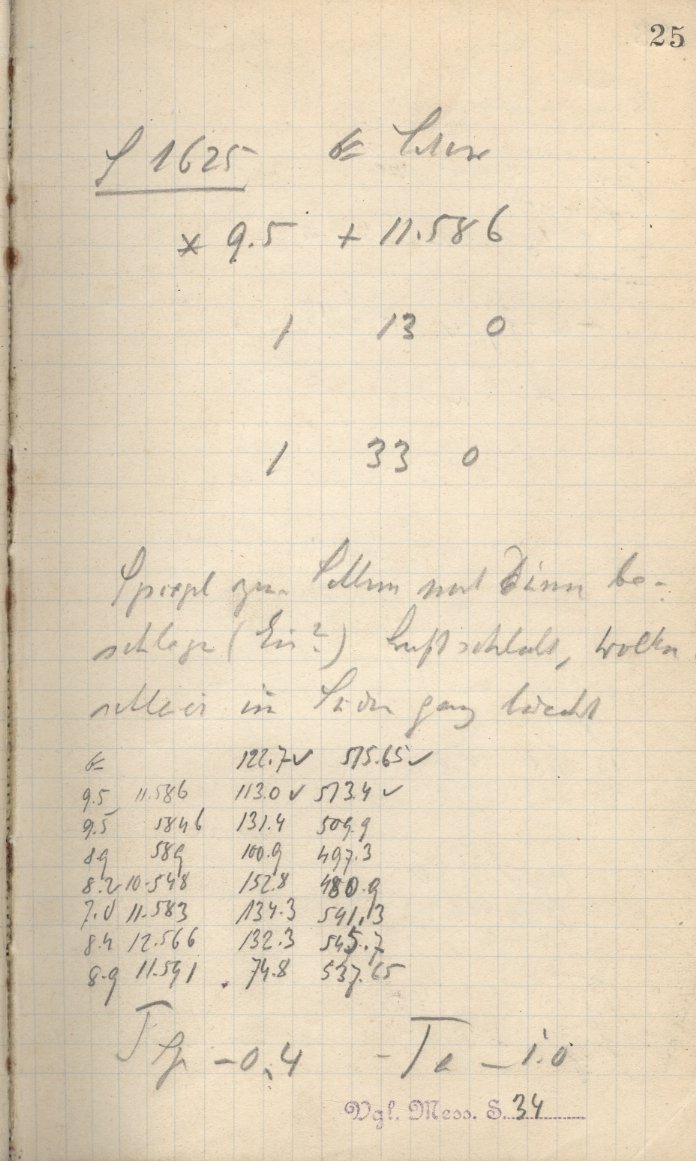 25
S 1625
* 9.5 + 11.586
1 13 0
1 33 0
Spiegel zum
schlagen (Eis?) Luft schlecht, Wolken
schleier im Süden ganz leicht
122.7 ✓ 515.65 ✓
9.5 11.586 113.0 ✓ 513.4 ✓
9.5 5846 131.4 509.9
89 589 100.9 497.3
8.2 10.548 152.8 480.9
7.0 11.583 134.3 541.3
8.4 12.566 132.3 545.7
8.9 11.591 74.8 537.65
T Sp -0.4 - Ta -1.0
Vgl. Mess. S. 34